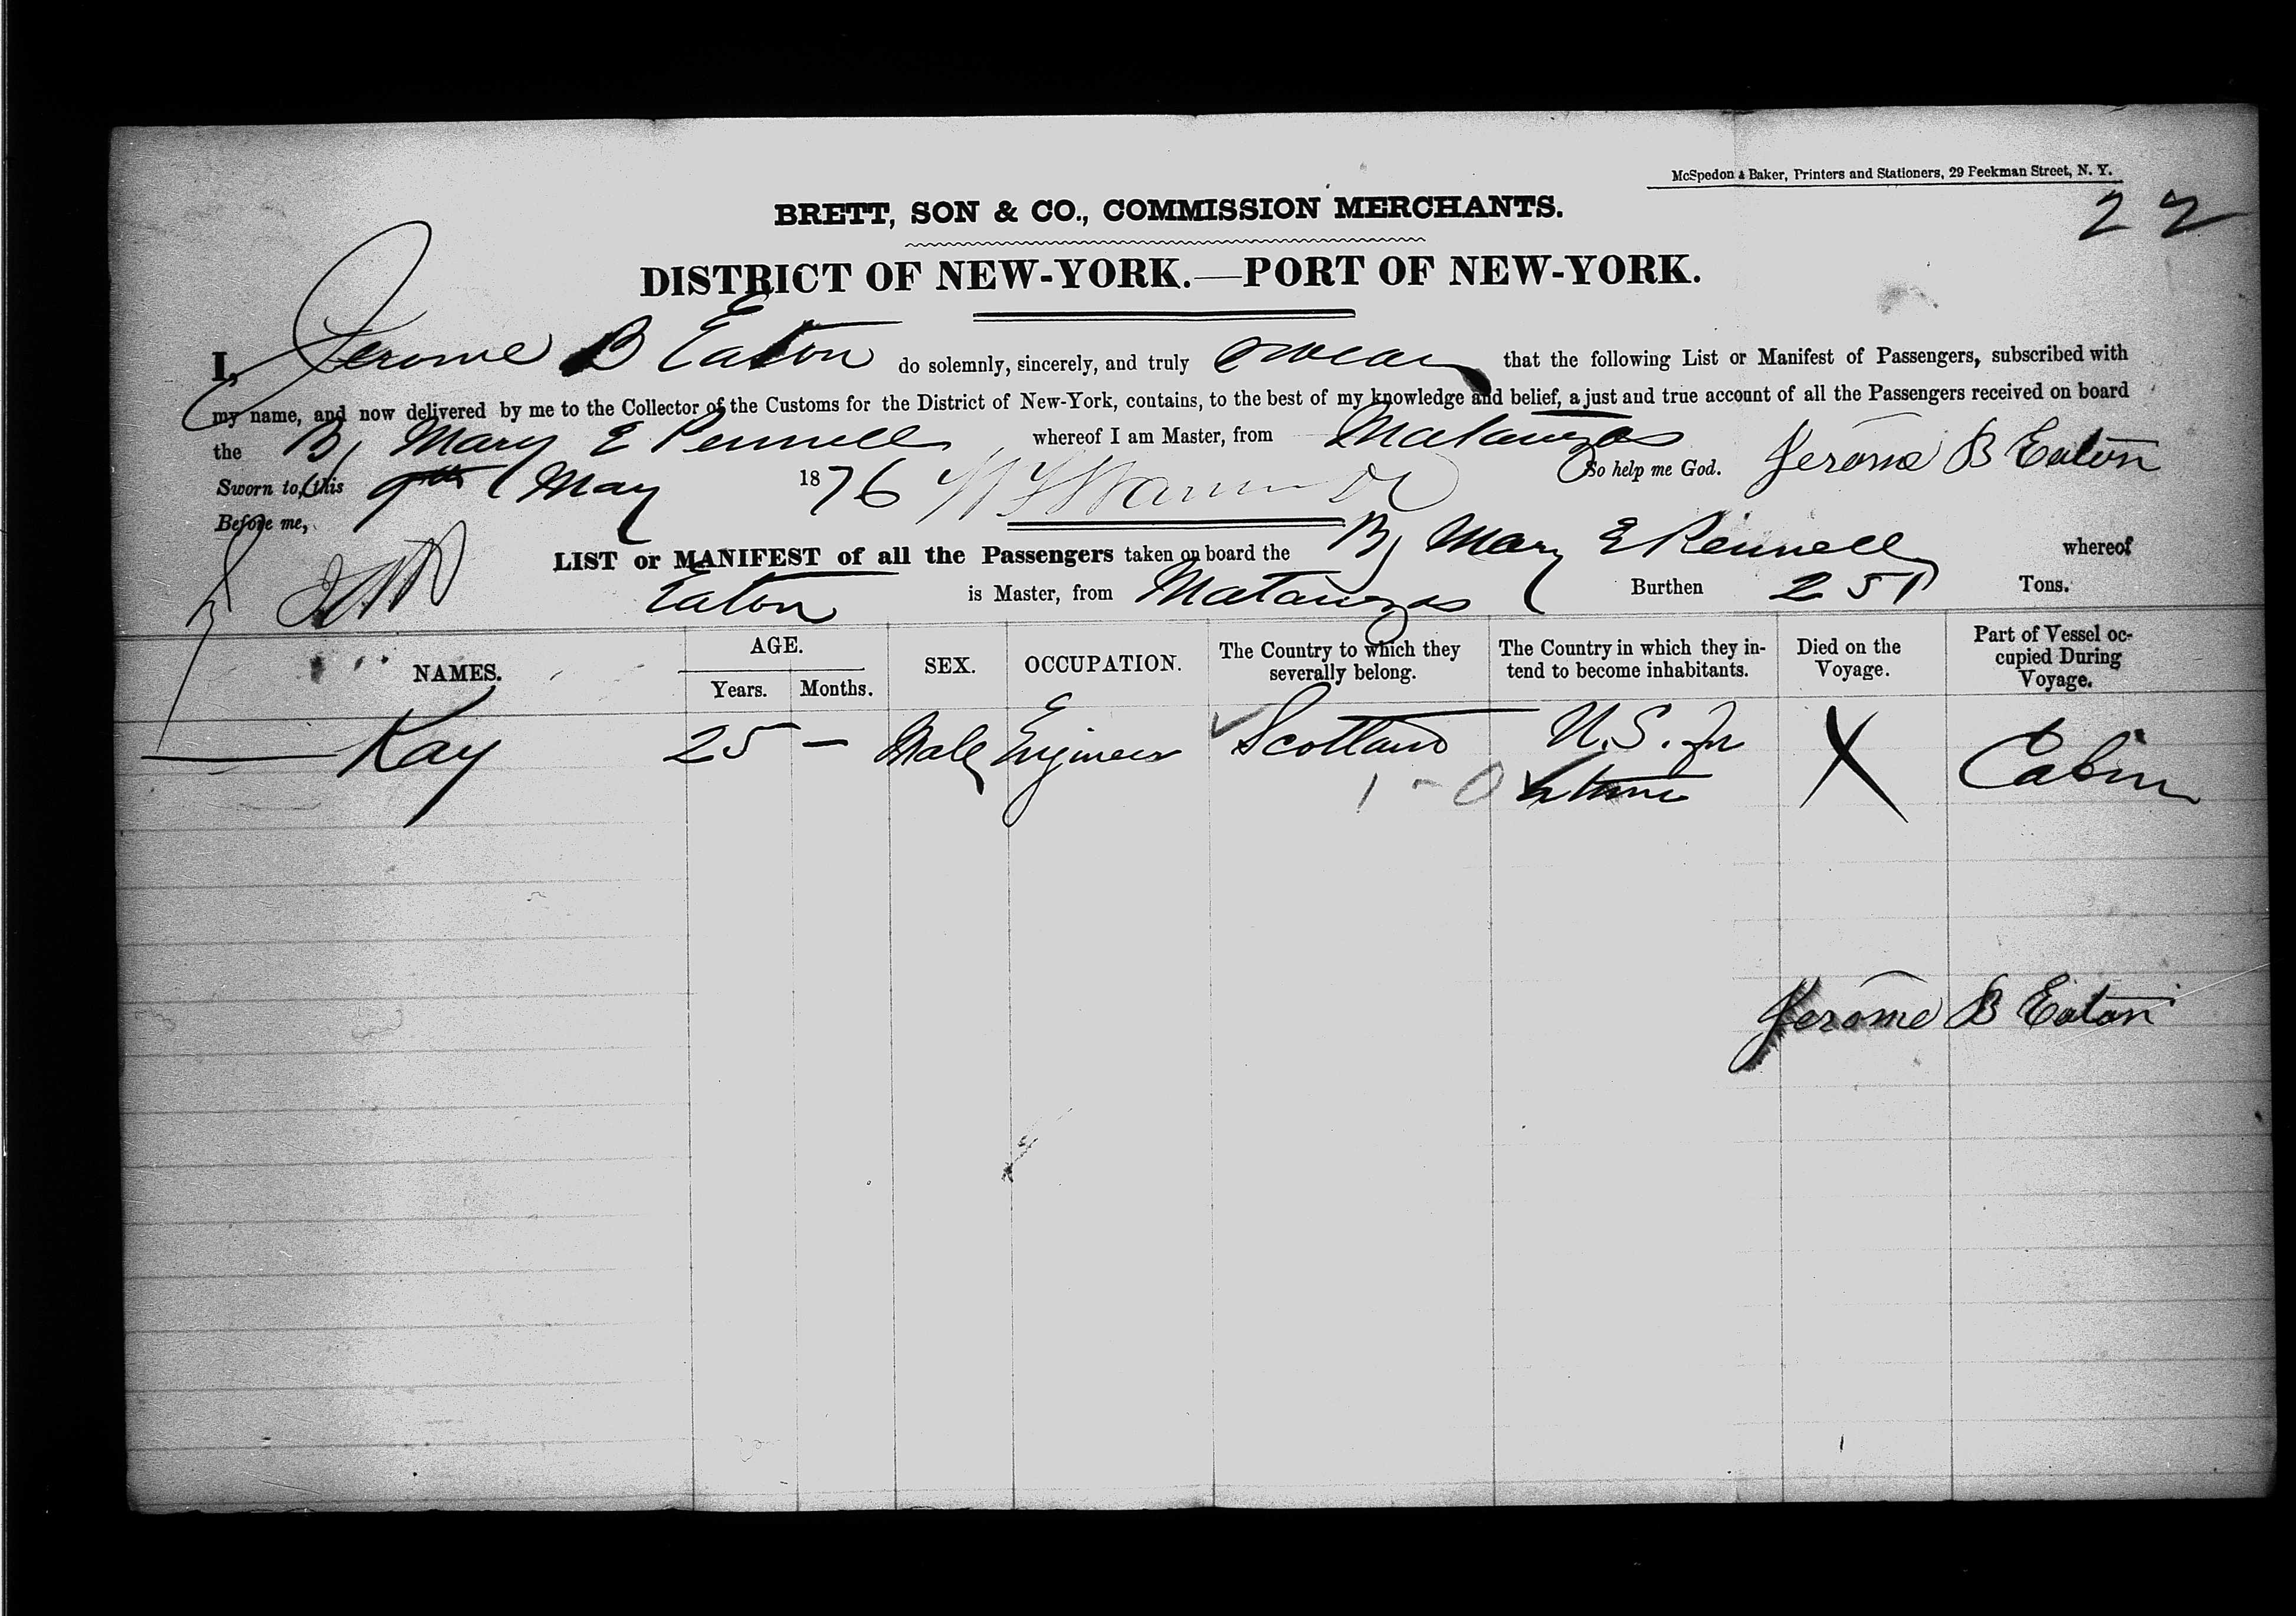 McSpedon & Baker, Printers and Stationers, 29 Beekman Street, N. Y.
22
BRETT, SON & CO., COMMISSION MERCHANTS.
DISTRICT OF NEW-YORK.—PORT OF NEW-YORK.
I, Jerome B Eaton do solemnly, sincerely, and truly swear that the following List or Manifest of Passengers, subscribed with
my name, and now delivered by me to the Collector of the Customs for the District of New-York, contains, to the best of my knowledge and belief, a just and true account of all the Passengers received on board
the Bg Mary E Pennell whereof I am Master, from Matanzas
Sworn to, this 9th May 1876 So help me God. Jerome B Eaton
Before me,
LIST or MANIFEST of all the Passengers taken on board the Bg Mary E Pennell whereof
Eaton is Master, from Matanzas Burthen 251 Tons.
NAMES. AGE. Years. Months. SEX. OCCUPATION. The Country to which they severally belong. The Country in which they intend to become inhabitants. Died on the Voyage. Part of Vessel occupied During Voyage.
Kay 25 — Male Engineer Scotland U.S. In X Cabin
1 - 0
Jerome B Eaton